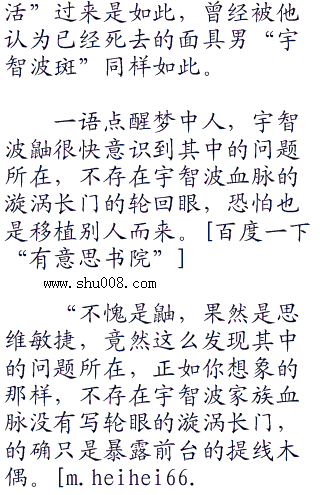 活”过来是如此，曾经被他
认为已经死去的面具男“宇
智波斑”同样如此。
一语点醒梦中人，宇智
波鼬很快意识到其中的问题
所在，不存在宇智波血脉的
漩涡长门的轮回眼，恐怕也
是移植别人而来。[百度一下
“有意思书院”]
www.shu008.com
“不愧是鼬，果然是思
维敏捷，竟然这么发现其中
的问题所在，正如你想象的
那样，不存在宇智波家族血
脉没有写轮眼的漩涡长门，
的确只是暴露前台的提线木
偶。[m.heihei66.